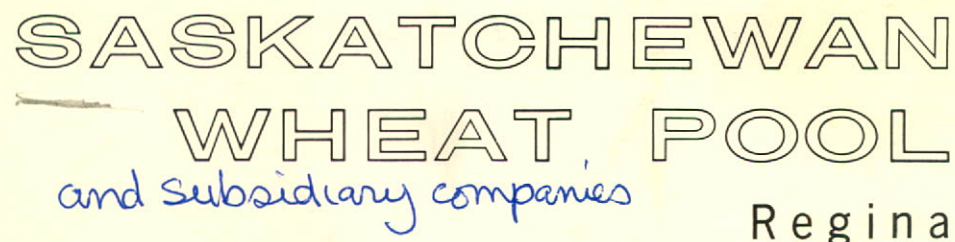 SASKATCHEWAN
WHEAT POOL
and subsidiary companies
Regina